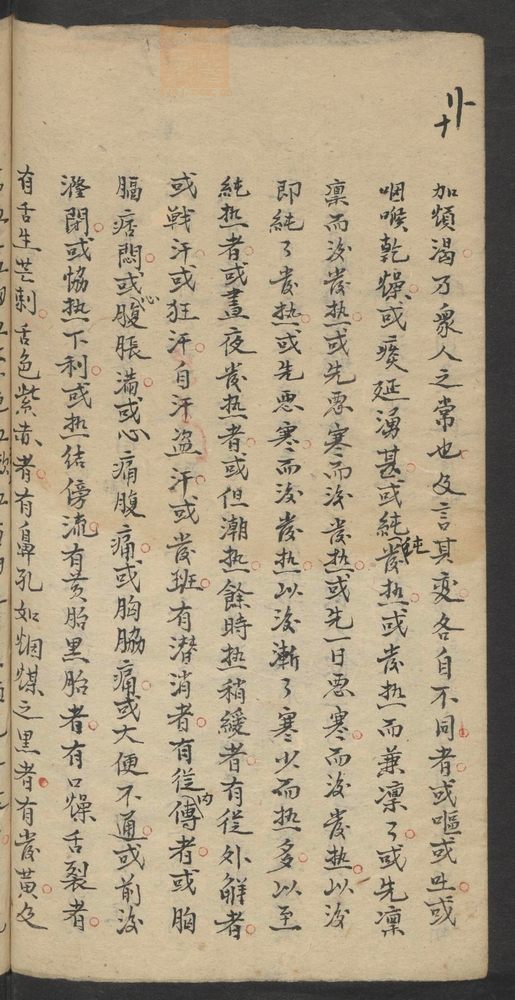 加煩渴乃衆人之常也及言其变各自不同者或嘔或吐或
咽喉乾燥或痰延湧甚或純純發热或發热而兼凛了或先凛
凛而後發热或先惡寒而後發热或先一日惡寒而後發热以後
即純了發热或先惡寒而後發热以後漸了寒少而热多以至
純热者或晝夜發热者或但潮热餘時热稍緩者有從外觧者
或戦汗或狂汗自汗盗汗或發班有潜消者有從内傳者或胸
膈痞悶或心腹脹滿或心痛腹痛或胸脇痛或大便不通或前後
癃閉或恊热下利或热结傍流有黄胎黒胎者有口燥舌裂者
有舌生芒刺舌色紫赤者有鼻孔如烟煤之黒者有發黄及